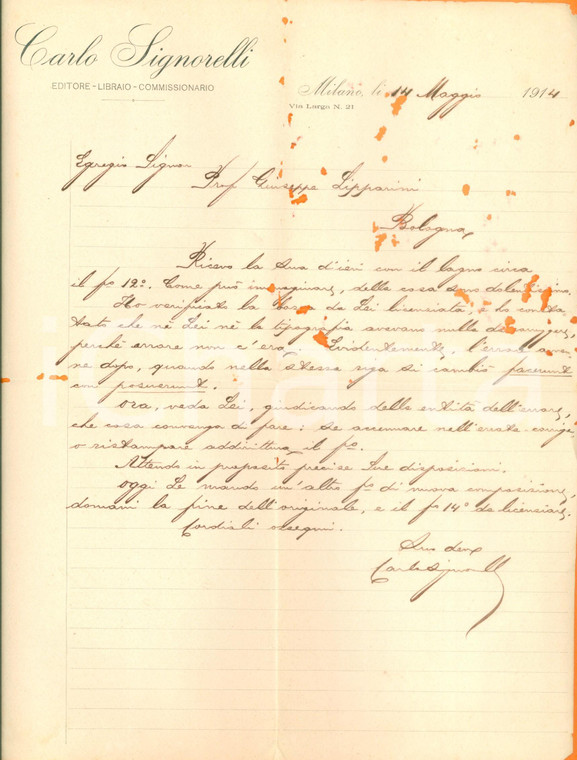 Carlo Signorelli
EDITORE-LIBRAIO-COMMISSIONARIO
Milano, li 14 Maggio 1914
Via Larga N. 21
Egregio Signor
Prof Giuseppe Lipparini
Bologna
Ricevo la Sua d'ieri con il lagno circa
il fº 12º. Come può immaginare, della cosa sono dolentissimo.
Ho verificato la bozza da Lei licenziata, e ho consta-
tato che nè Lei nè la tipografia avevano nulla da correggere,
perchè errore non c'era. Evidentemente, l'errore avven-
ne dopo, quando nella stessa riga si cambiò fecerunt
con posuerunt.
Ora, veda Lei, giudicando della entità dell'errore,
che cosa convenga di fare: se accennare nell'errata-corrige
o ristampare addirittura il fº.
Attendo in proposito precise Sue disposizioni.
Oggi Le mando un'altro fº di nuova composizione,
domani la fine dell'originale, e il fº 14º da licenziare.
Cordiali ossequi.
Suo dev
Carlo Signorelli